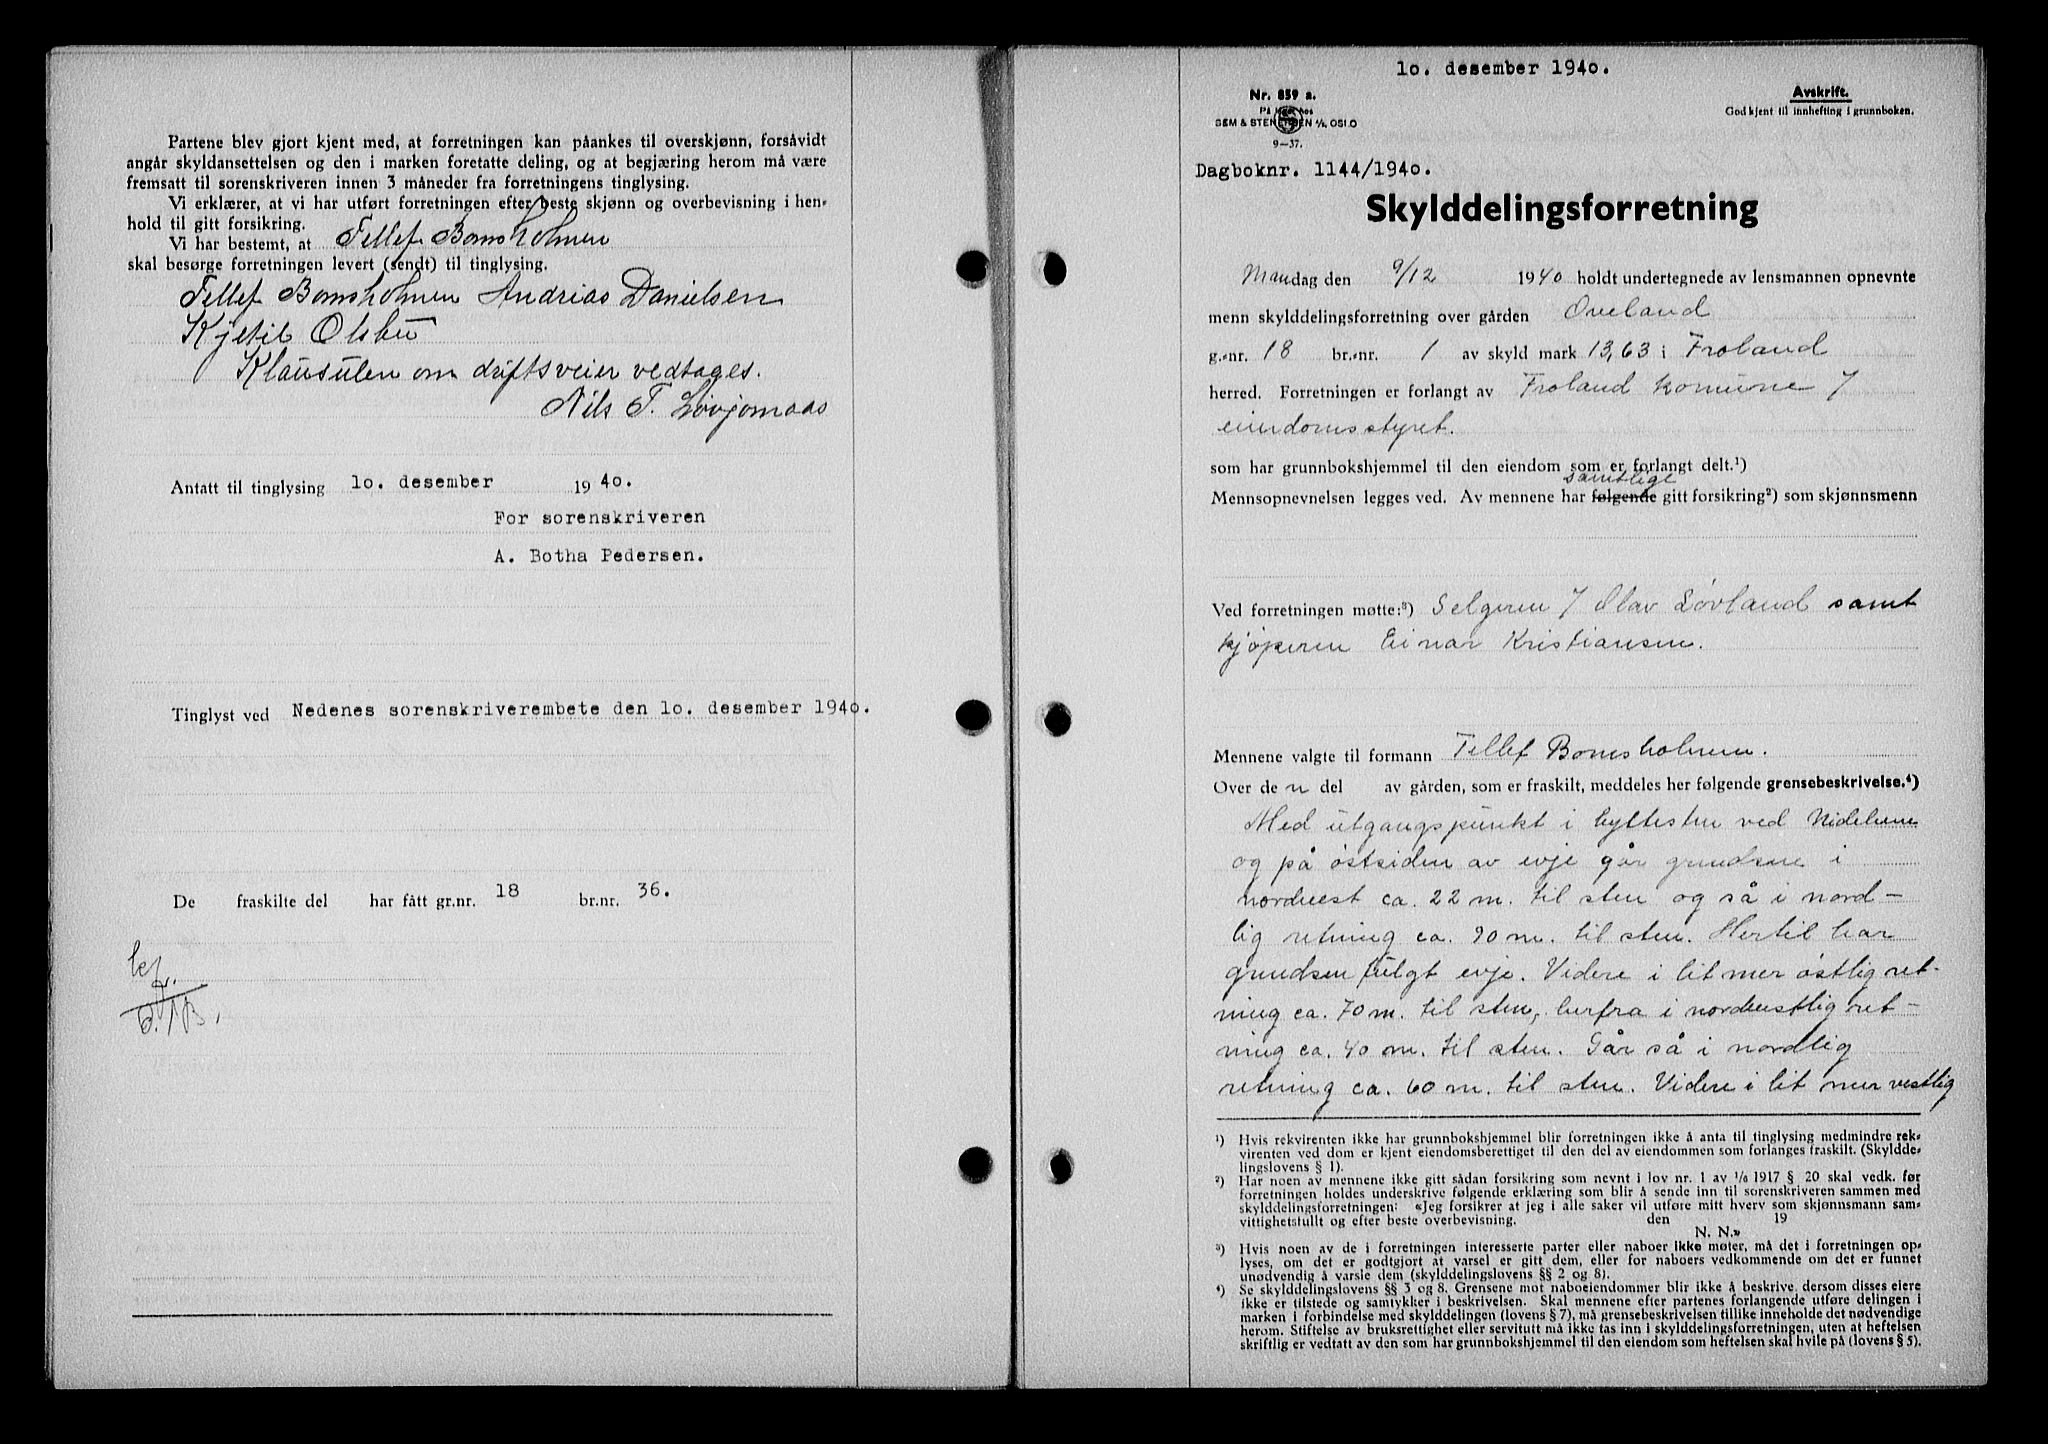 Partene blev gjort kjent med, at forretningen kan påankes til overskjønn, forsåvidt
angår skyldansettelsen og den i marken foretatte deling, og at begjæring herom må være
fremsatt til sorenskriveren innen 3 måneder fra forretningens tinglysing.
Vi erklærer, at vi har utført forretningen efter beste skjønn og overbevisning i hen-
hold til gitt forsikring.
Vi har bestemt, at Tellef Bomsholmen
skal besørge forretningen levert (sendt) til tinglysing.
Tellef Bomsholmen Andrias Danielsen
Kjetil Olsbu
Klausulen om driftsveier vedtages.
Nils T.
Antatt til tinglysing 10. desember 1940.
For sorenskriveren
A. Botha Pedersen.
Tinglyst ved Nedenes sorenskriverembete den 10. desember 1940.
De fraskilte del har fått gr.nr. 18 br.nr. 36.
10. desember 1940.
Nr. 859 a.
På lager hos
SEM & STENERSEN A/S, OSLO
9-37.
Avskrift.
Godkjent til innhefting i grunnboken.
Dagboknr. 1144/1940.
Skylddelingsforretning
Mandag den 9/12 1940 holdt undertegnede av lensmannen opnevnte
menn skylddelingsforretning over gården Øveland
g.-nr. 18 br.-nr. 1 av skyld mark 13,63 i Froland
herred. Forretningen er forlangt av Froland komune /
eiendomsstyret.
som har grunnbokshjemmel til den eiendom som er forlangt delt.¹)
samtlige
Mennsopnevnelsen legges ved. Av mennene har følgende gitt forsikring²) som skjønnsmenn
Ved forretningen møtte:³) Selgeren / Olav Løvland samt
kjøperen Einar Kristiansen.
Mennene valgte til formann Tellef Bomsholmen.
Over den del av gården, som er fraskilt, meddeles her følgende grensebeskrivelse.⁴)
Med utgangspunkt i byttesten ved Nidelven
og på østsiden av evje går grendsene i
nordvest ca. 22 m. til sten og så i nord-
lig retning ca. 90 m. til sten. Hertil har
grendsen fulgt evje. Videre i lit mer østlig ret-
ning ca. 70 m. til sten, herfra i nordvestlig ret-
ning ca. 40 m. til sten. Går så i nordlig
retning ca. 60 m. til sten. Videre i lit mer vestlig
¹) Hvis rekvirenten ikke har grunnbokshjemmel blir forretningen ikke å anta til tinglysing medmindre rek-
virenten ved dom er kjent eiendomsberettiget til den del av eiendommen som forlanges fraskilt. (Skyldde-
lingslovens § 1).
²) Har noen av mennene ikke gitt sådan forsikring som nevnt i lov nr. 1 av 1/6 1917 § 20 skal vedk. før
forretningen holdes underskrive følgende erklæring som blir å sende inn til sorenskriveren sammen med
skylddelingsforretningen: «Jeg forsikrer at jeg i alle saker vil utføre mitt hverv som skjønnsmann sam-
vittighetsfullt og efter beste overbevisning. den 19
N. N.»
³) Hvis noen av de i forretningen interesserte parter eller naboer ikke møter, må det i forretningen op-
lyses, om det er godtgjort at varsel er gitt dem, eller for naboers vedkommende om det er funnet
unødvendig å varsle dem (skylddelingslovens §§ 2 og 8).
⁴) Se skylddelingslovens §§ 3 og 8. Grensene mot naboeiendommer blir ikke å beskrive, dersom disses eiere
ikke er tilstede og samtykker i beskrivelsen. Skal mennene efter partenes forlangende utføre delingen i
marken i forbindelse med skylddelingen (lovens § 7), må grensebeskrivelsen tillike inneholde det nødvendige
herom. Stiftelse av bruksrettighet eller servitutt må ikke tas inn i skylddelingsforretningen, uten at heftelsen
skriftlig er vedtatt av den som har grunnbokshjemmel til den eiendom som heftelsen skal hvile på (lovens § 5).